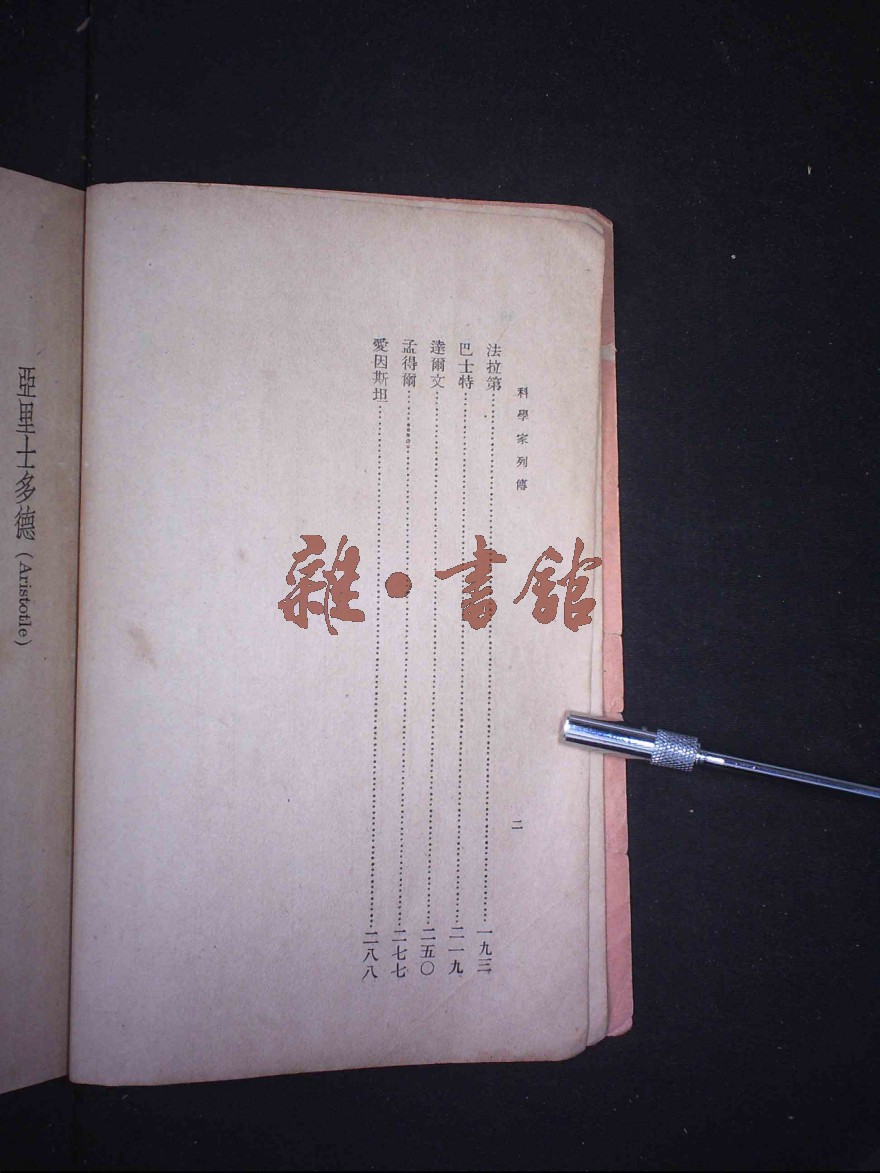 科學家列傳
二
法拉第……一九三
巴士特……二一九
達爾文……二五〇
孟得爾……二七七
愛因斯坦……二八八
亞里士多德 (Aristotle)
雜•書館